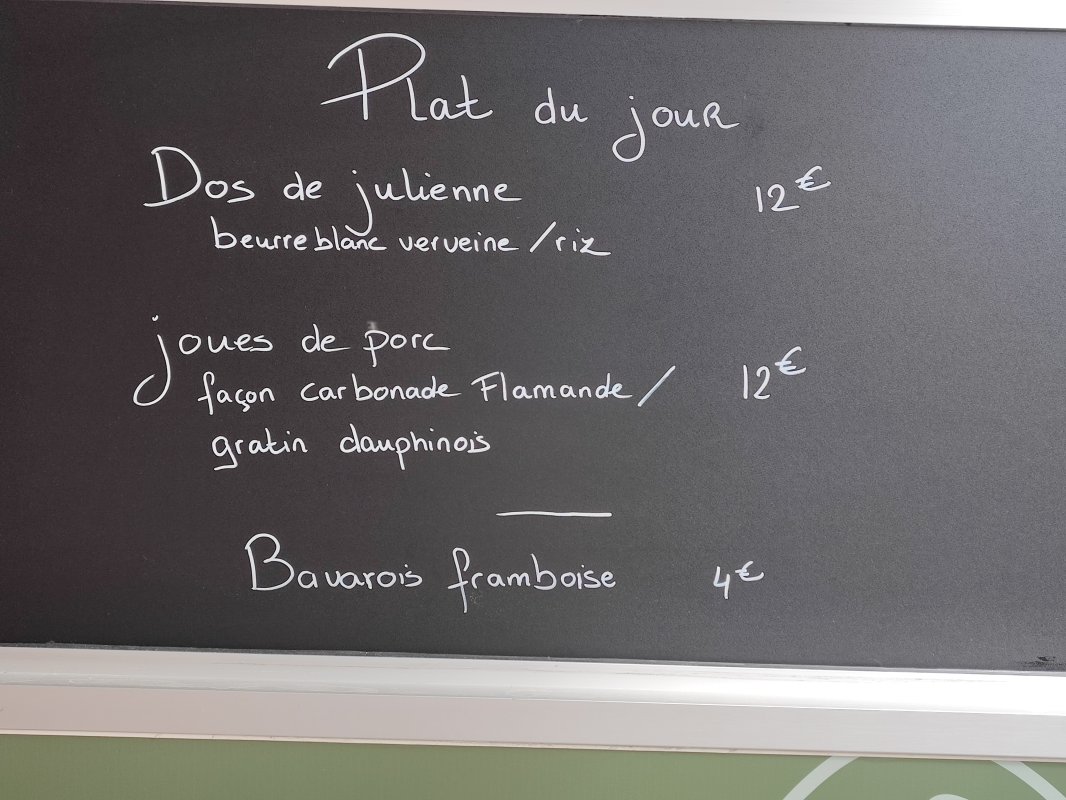 Plat du jour
Dos de julienne 12€
beurre blanc verveine / riz
joues de porc
façon carbonade Flamande / 12€
gratin dauphinois
Bavarois framboise 4€